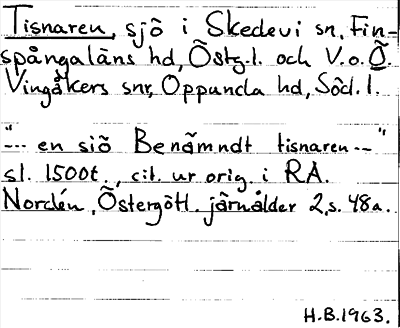 Tisnaren, sjö i Skedevi sn, Fin-
spångaläns hd, Östg.l. och V.o.Ö.
Vingåkers snr, Oppunda hd, Söd.l.
"--- en siö Benämndt tisnaren ---"
sl. 1500t., cit. ur orig. i RA.
Nordén, Östergötl. järnålder 2, s. 48a.
H.B.1963.